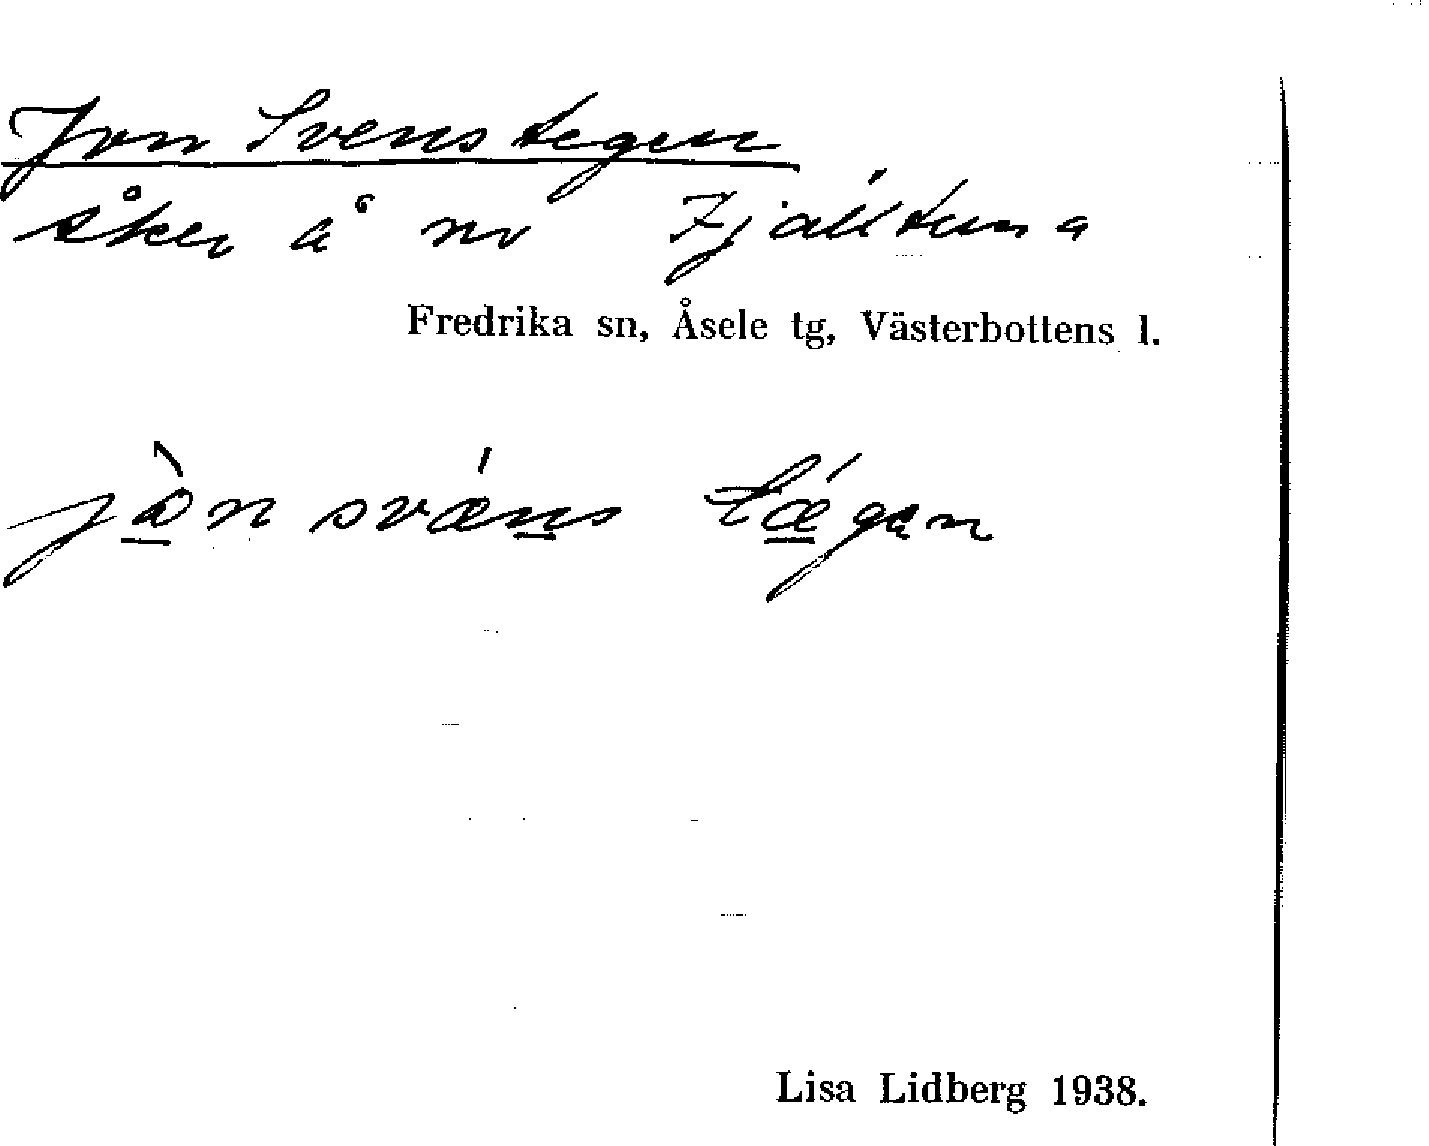 Jon Svenstegen
åker å nr Fjälltuna
Fredrika sn, Åsele tg, Västerbottens l.
jòn sváens táegen
Lisa Lidberg 1938.